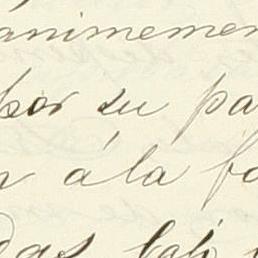 animemen
por su pa
n ála fa
das